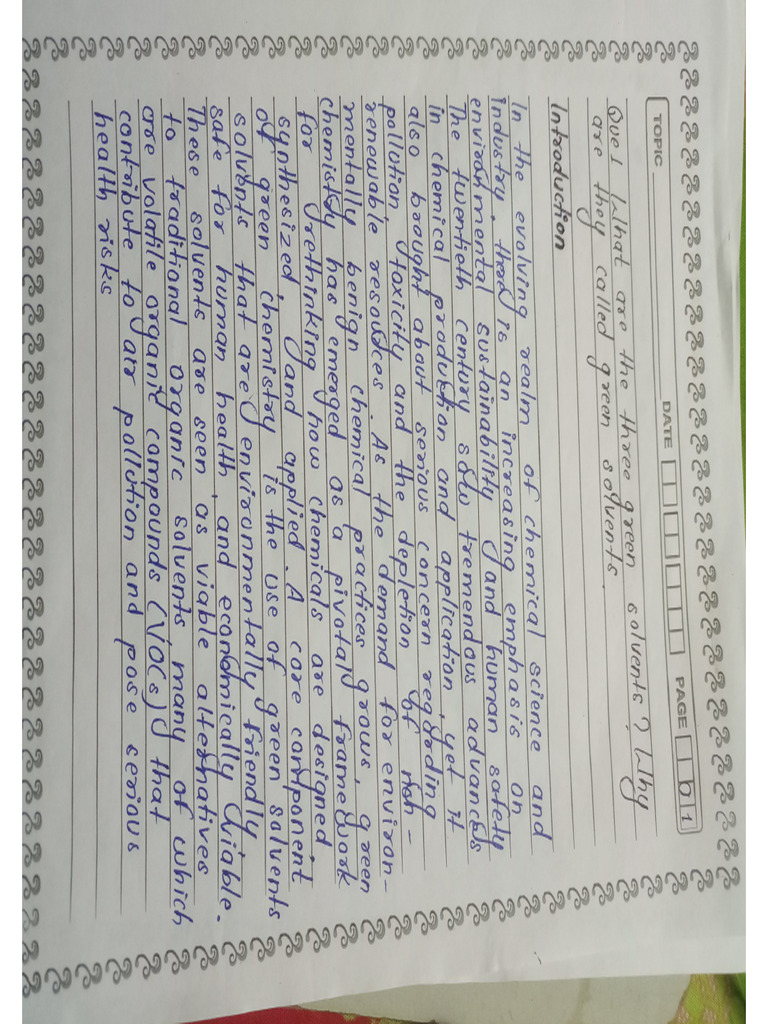 TOPIC DATE PAGE 01
Que 1 What are the three green solvents? Why
are they called green solvents.
Introduction
In the evolving realm of chemical science and
industry, there is an increasing emphasis on
environmental sustainability and human safety
The twentieth century saw tremendous advances
in chemical production and application, yet it
also brought about serious concern regarding
pollution, toxicity and the depletion of non-
renewable resources. As the demand for environ-
mentally benign chemical practices grows, green
chemistry has emerged as a pivotal framework
for rethinking how chemicals are designed
synthesized, and applied. A core component
of green chemistry is the use of green solvents
solvents that are environmentally friendly
safe for human health, and economically viable.
These solvents are seen as viable alternatives
to traditional organic solvents many of which
are volatile organic compounds (VOCs) that
contribute to air pollution and pose serious
health risks